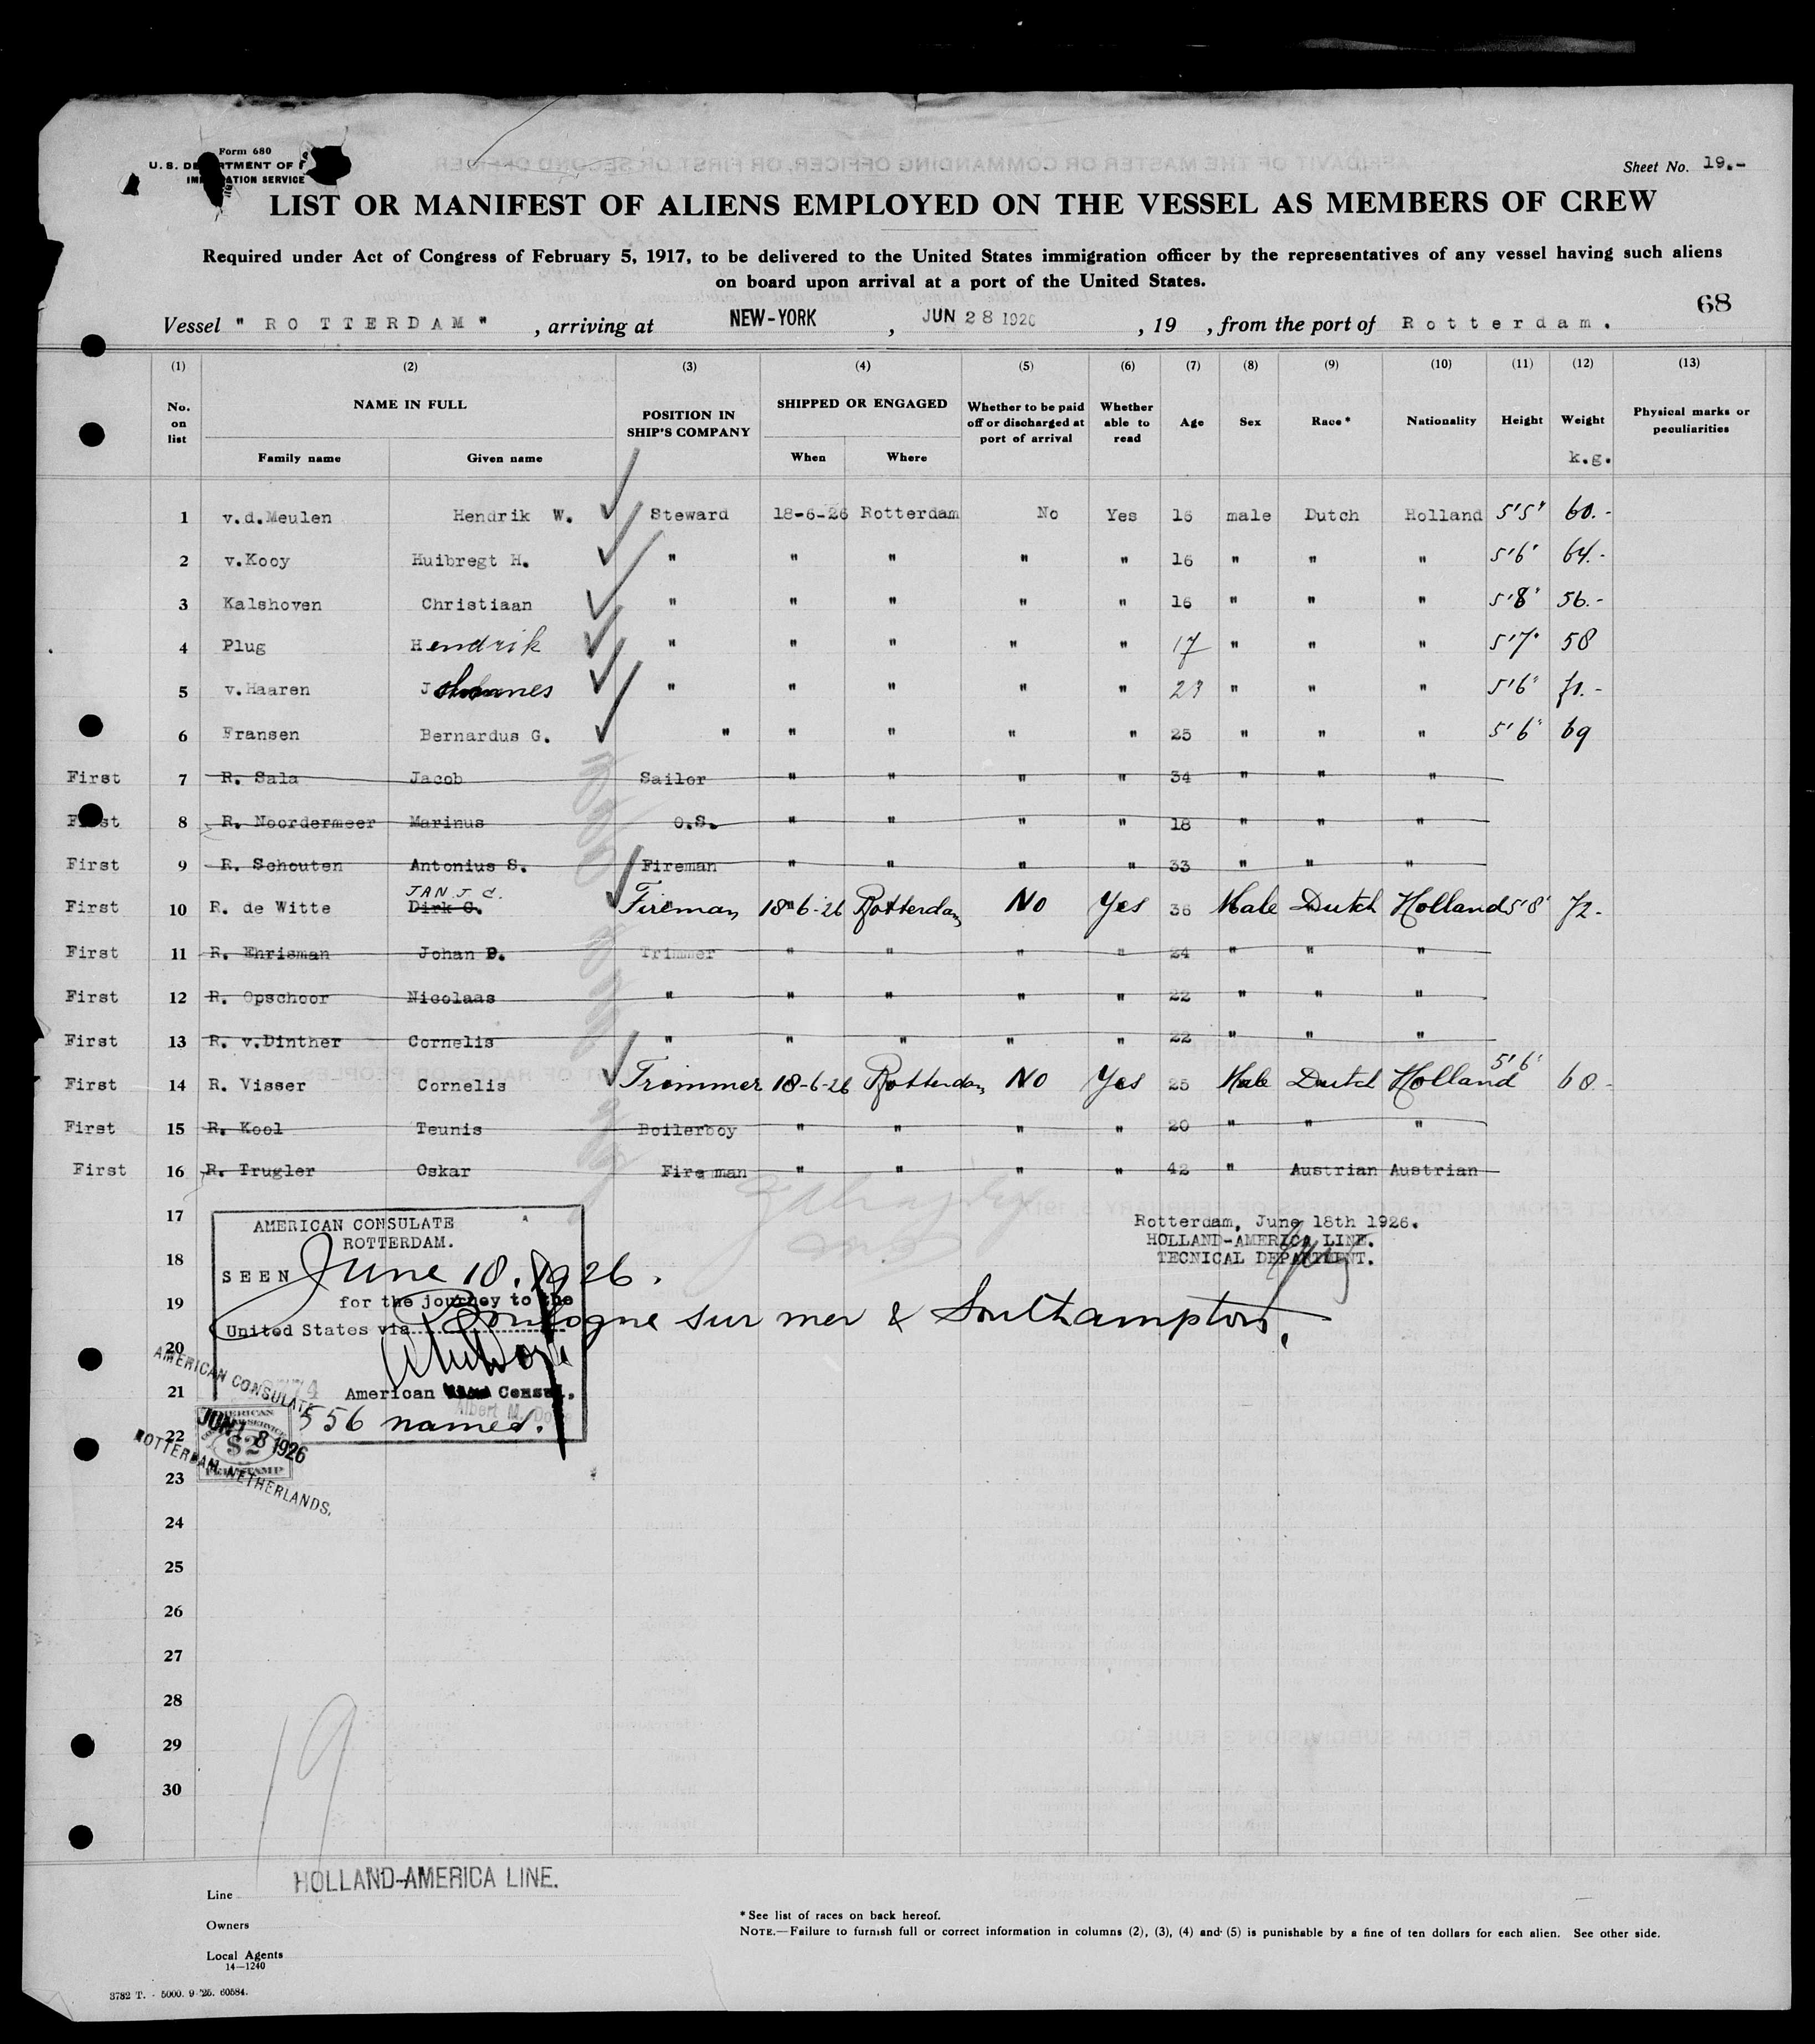 Form 680
U. S. DEPARTMENT OF
IMMIGRATION SERVICE
Sheet No. 19.-
LIST OR MANIFEST OF ALIENS EMPLOYED ON THE VESSEL AS MEMBERS OF CREW
Required under Act of Congress of February 5, 1917, to be delivered to the United States immigration officer by the representatives of any vessel having such aliens
on board upon arrival at a port of the United States.
68
Vessel " ROTTERDAM " , arriving at NEW-YORK , JUN 28 1926 , 19 , from the port of Rotterdam.
(1) (2) (3) (4) (5) (6) (7) (8) (9) (10) (11) (12) (13)
No. on list NAME IN FULL POSITION IN SHIP'S COMPANY SHIPPED OR ENGAGED Whether to be paid off or discharged at port of arrival Whether able to read Age Sex Race* Nationality Height Weight Physical marks or peculiarities
Family name Given name When Where k.g.
1 v.d.Meulen Hendrik W. Steward 18-6-26 Rotterdam No Yes 16 male Dutch Holland 5'5" 60.-
2 v.Kooy Huibregt H. " " " " " 16 " " " 5'6" 64.-
3 Kalshoven Christiaan " " " " " 16 " " " 5'8" 56.-
4 Plug Hendrik " " " " " 17 " " " 5'7" 58
5 v.Haaren Johannes " " " " " 23 " " " 5'6" 71.-
6 Fransen Bernardus G. " " " " " 25 " " " 5'6" 69
First 7 R. Sala Jacob Sailor " " " " 34 " " "
First 8 R. Noordermeer Marinus O.S. " " " " 18 " " "
First 9 R. Schouten Antonius S. Fireman " " " " 33 " " "
JAN J. C.
First 10 R. de Witte Dirk G. Fireman 18-6-26 Rotterdam No Yes 36 Male Dutch Holland 5'8" 72.-
First 11 R. Ehrisman Johan D. Trimmer " " " " 24 " " "
First 12 R. Opschoor Nicolaas " " " " " 22 " " "
First 13 R. v.Dinther Cornelis " " " " " 22 " " "
First 14 R. Visser Cornelis Trimmer 18-6-26 Rotterdam No Yes 25 Male Dutch Holland 5'6" 60.-
First 15 R. Kool Teunis Boilerboy " " " " 20 " " "
First 16 R. Trugler Oskar Fireman " " " " 42 " Austrian Austrian
17
AMERICAN CONSULATE
ROTTERDAM.
Rotterdam, June 18th 1926.
HOLLAND-AMERICA LINE.
TECNICAL DEPARTMENT.
18
SEEN June 18. 1926.
19
for the journey to the
United States via Boulogne sur mer & Southampton.
20
21
American Consul.
556 names.
22
AMERICAN CONSULATE
JUN 18 1926
ROTTERDAM, NETHERLANDS.
$2
23
24
25
26
27
28
29
30
19
Line HOLLAND-AMERICA LINE.
Owners
Local Agents
14—1240
* See list of races on back hereof.
NOTE.—Failure to furnish full or correct information in columns (2), (3), (4) and (5) is punishable by a fine of ten dollars for each alien. See other side.
3782 T. - 5000. 9-'25. 60584.